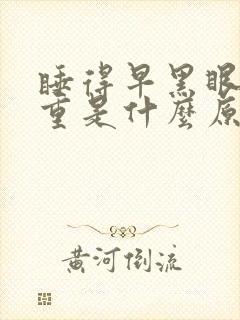 睡得早黑眼
重是什麼原
黄河倒流